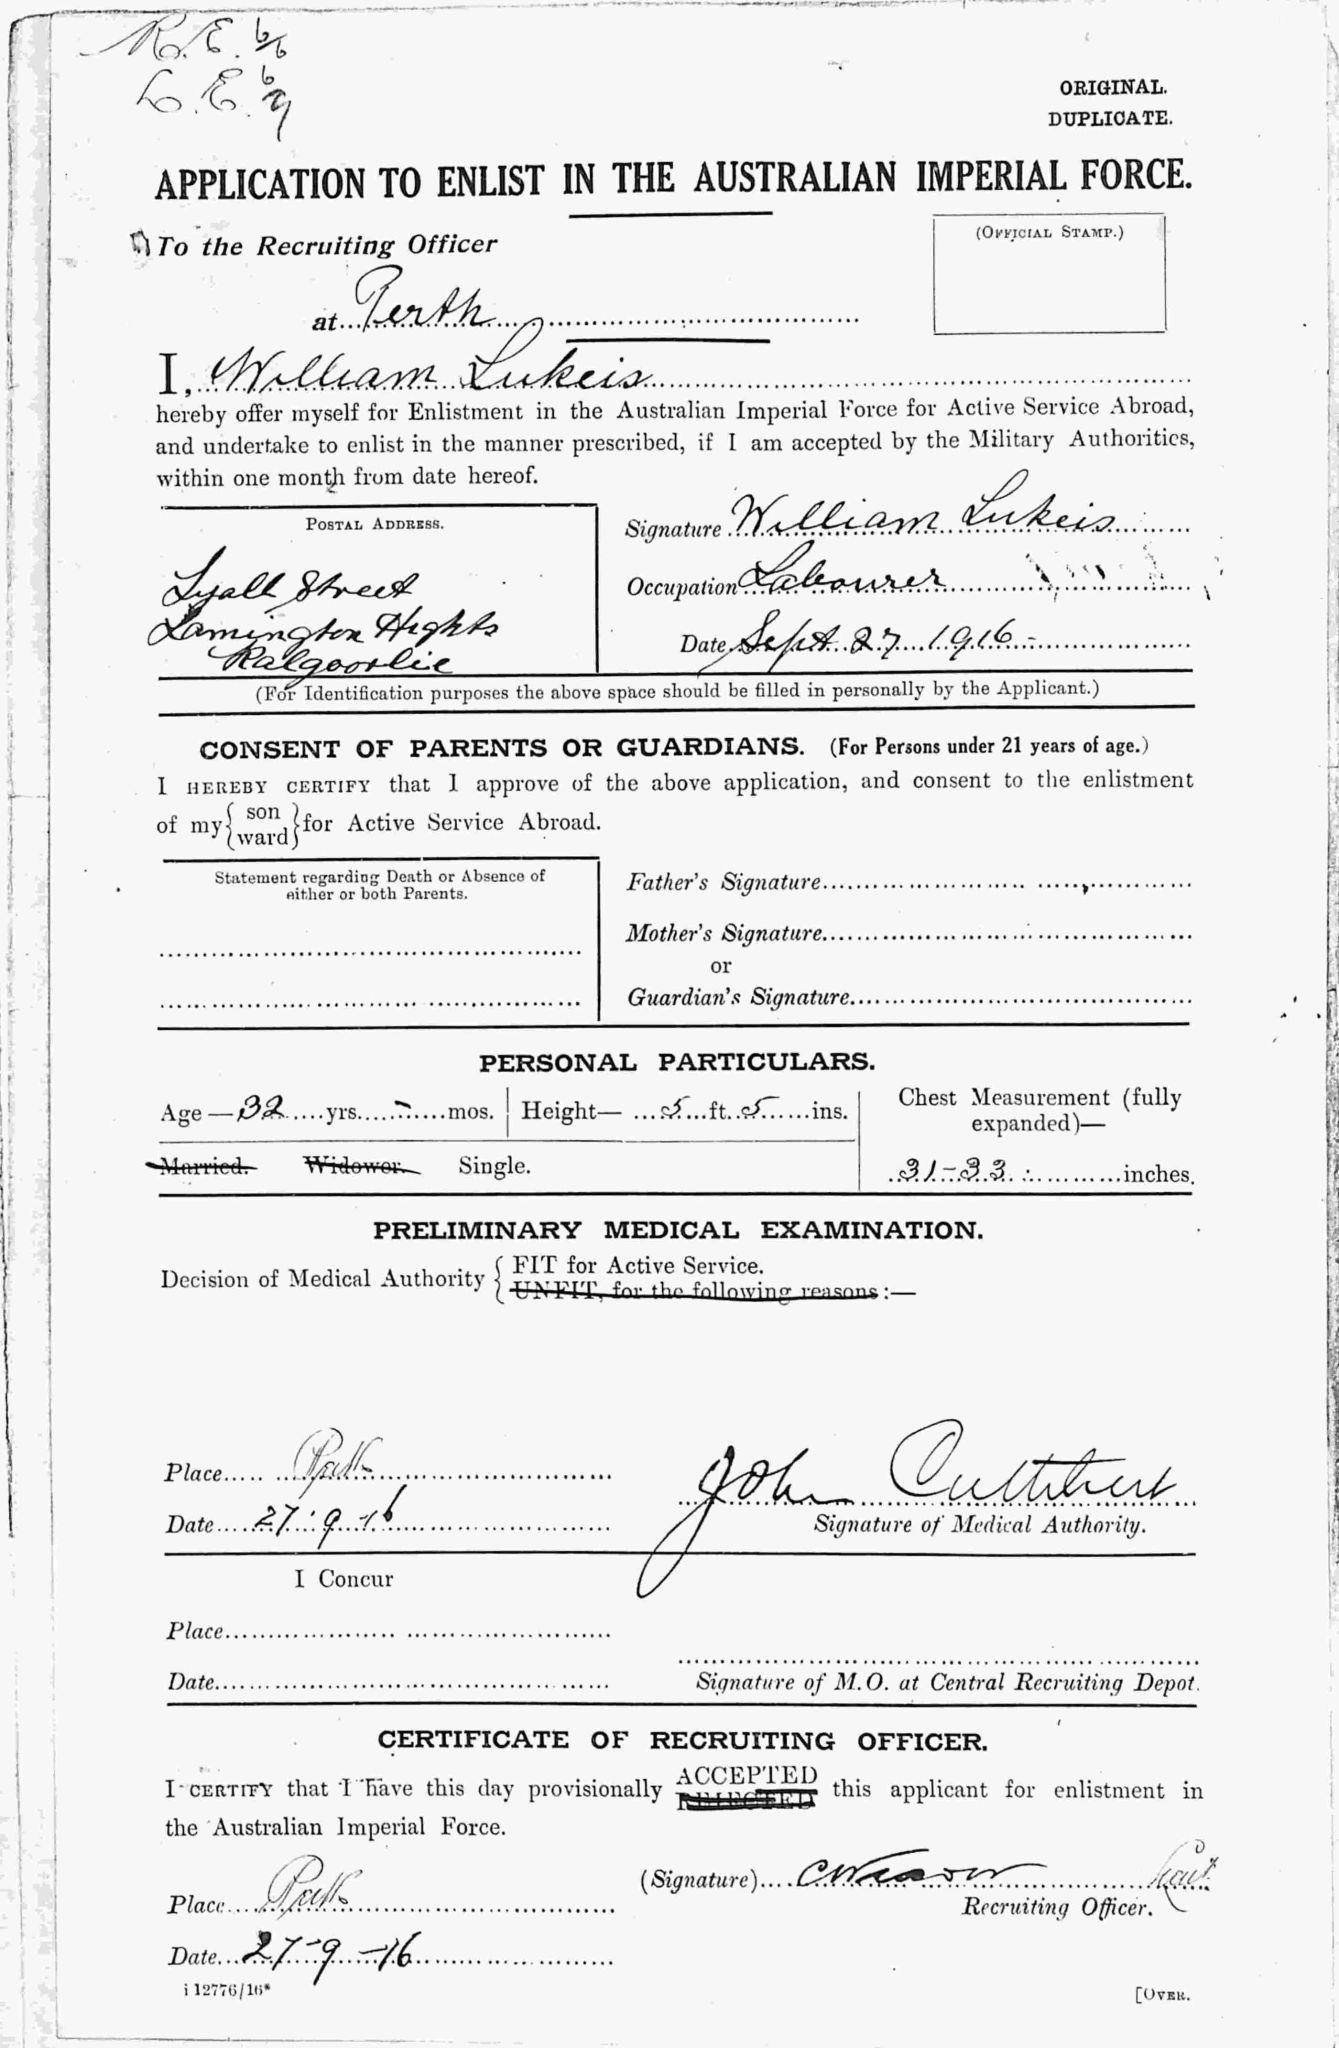 R.E. 6/6
L.E. 6/9
ORIGINAL.
DUPLICATE.
APPLICATION TO ENLIST IN THE AUSTRALIAN IMPERIAL FORCE.
To the Recruiting Officer
(OFFICIAL STAMP.)
at Perth
I, William Lukeis
hereby offer myself for Enlistment in the Australian Imperial Force for Active Service Abroad,
and undertake to enlist in the manner prescribed, if I am accepted by the Military Authorities,
within one month from date hereof.
POSTAL ADDRESS.
Lyall Street
Lamington Hights
Kalgoorlie
Signature William Lukeis
Occupation Labourer
Date Sept 27 1916
(For Identification purposes the above space should be filled in personally by the Applicant.)
CONSENT OF PARENTS OR GUARDIANS. (For Persons under 21 years of age.)
I HEREBY CERTIFY that I approve of the above application, and consent to the enlistment
of my { son ward } for Active Service Abroad.
Statement regarding Death or Absence of
either or both Parents.
Father's Signature
Mother's Signature
or
Guardian's Signature
PERSONAL PARTICULARS.
Age — 32 yrs. - mos. Height— 5 ft. 5 ins.
Married. Widower. Single.
Chest Measurement (fully
expanded)—
31-33 inches.
PRELIMINARY MEDICAL EXAMINATION.
Decision of Medical Authority { FIT for Active Service.
UNFIT, for the following reasons:—
Place Perth
Date 27.9-16
John Cuthbert
Signature of Medical Authority.
I Concur
Place
Date
Signature of M.O. at Central Recruiting Depot.
CERTIFICATE OF RECRUITING OFFICER.
I CERTIFY that I have this day provisionally ACCEPTED REJECTED this applicant for enlistment in
the Australian Imperial Force.
Place Perth
(Signature)
Recruiting Officer.
Date 27-9-16
i 12776/16*
[OVER.